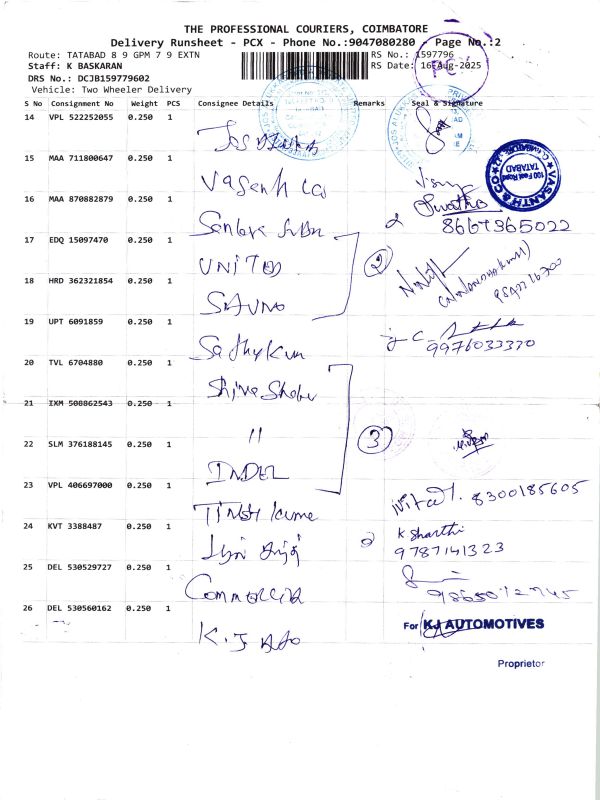 THE PROFESSIONAL COURIERS, COIMBATORE
Delivery Runsheet - PCX - Phone No.:9047080280 - Page No.:2
Route: TATABAD 8 9 GPM 7 9 EXTN
RS No.: 1597796
Staff: K BASKARAN
RS Date: 16-Aug-2025
DRS No.: DCJB159779602
Vehicle: Two Wheeler Delivery
S No Consignment No Weight PCS Consignee Details Remarks Seal & Signature
14 VPL 522252055 0.250 1
15 MAA 711800647 0.250 1
Vasanth Co
VASANTH & CO
100 Feet Road
TATABAD
16 MAA 870882879 0.250 1
Swatha
8667365022
17 EDQ 15097470 0.250 1
UNITED
2
18 HRD 362321854 0.250 1
19 UPT 6091859 0.250 1
Sathykum
9976033330
20 TVL 6704880 0.250 1
21 IXM 508862543 0.250 1
"
3
22 SLM 376188145 0.250 1
INDEL
23 VPL 406697000 0.250 1
8300185605
24 KVT 3388487 0.250 1
K Sharthi
9787141323
25 DEL 530529727 0.250 1
Commercial
26 DEL 530560162 0.250 1
K.J Auto
For KJ AUTOMOTIVES
Proprietor